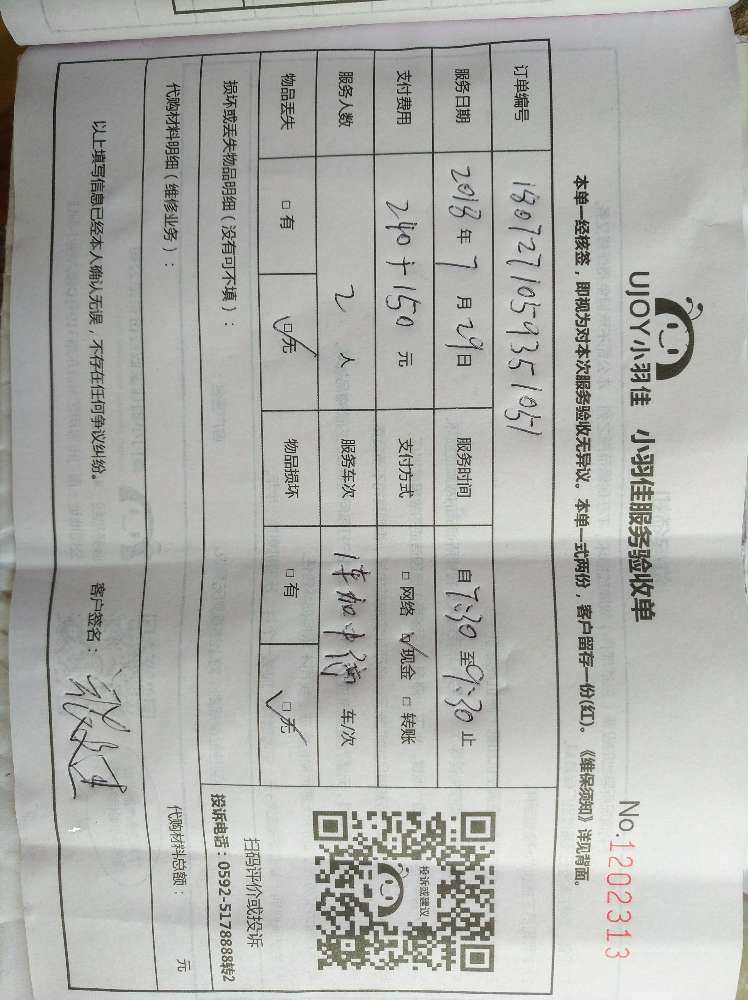 UJOY小羽佳 小羽佳服务验收单 No.1202313
本单一经核签，即视为对本次服务验收无异议。本单一式两份，客户留存一份(红)。《维保须知》详见背面。
订单编号 1807271059351051
服务日期 2018年7月29日 服务时间 自7:30至9:30止
支付费用 240+150元 支付方式 □网络 ☑现金 □转账
服务人数 2人 服务车次 车/次
物品丢失 □有 ☑无 物品损坏 □有 ☑无
损坏或丢失物品明细（没有可不填）：
投诉或建议
扫码评价或投诉
投诉电话：0592-5178888转2
代购材料明细（维修业务）： 代购材料总额： 元
以上填写信息已经本人确认无误，不存在任何争议纠纷。 客户签名：